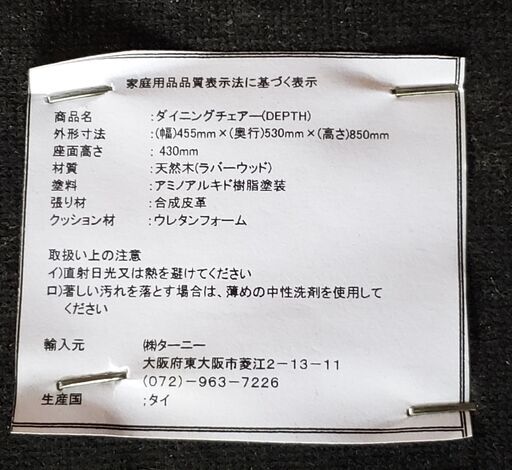 家庭用品品質表示法に基づく表示
商品名 :ダイニングチェアー(DEPTH)
外形寸法 :(幅)455mm×(奥行)530mm×(高さ)850mm
座面高さ : 430mm
材質 :天然木(ラバーウッド)
塗料 :アミノアルキド樹脂塗装
張り材 :合成皮革
クッション材 :ウレタンフォーム
取扱い上の注意
イ)直射日光又は熱を避けてください
ロ)著しい汚れを落とす場合は、薄めの中性洗剤を使用して
ください
輸入元 :㈱ターニー
大阪府東大阪市菱江2-13-11
(072)-963-7226
生産国 :タイ